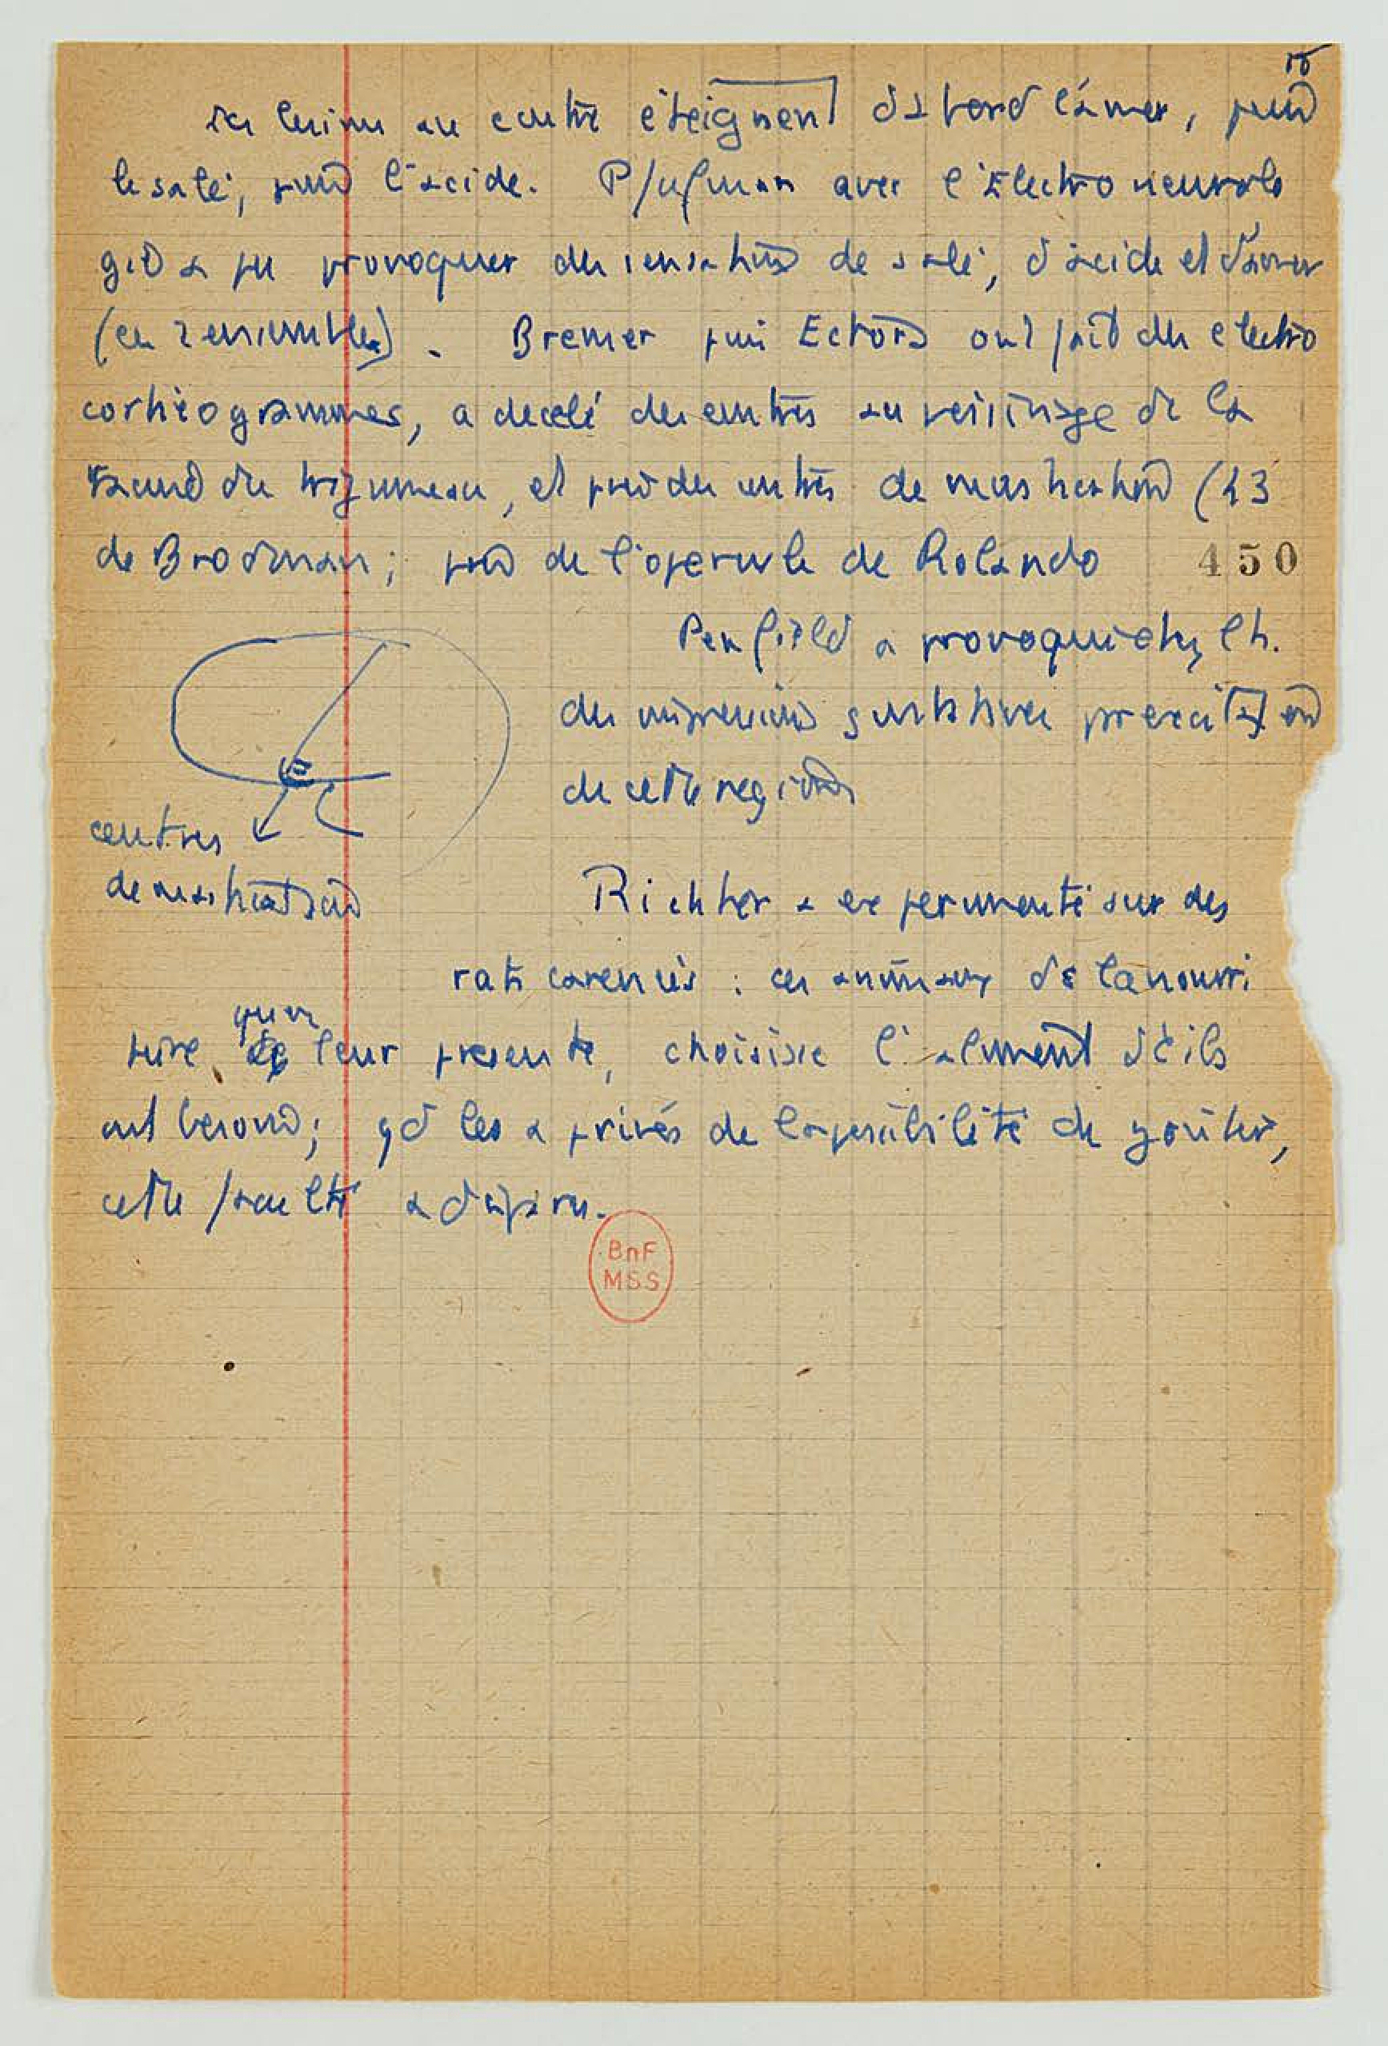 15
au contre éteignent d'abord l'amer, puis
le salé, puis l'acide. avec l'Electro neurolo
gie a pu provoquer des sensations de salé, d'acide et d'amer
(en ensembles). Bremer puis Ectors ont fait des electro
corticogrammes, a decelé des centres au voisinage de la
du trijumeau, et près des centres de mastication (43
de Brodman; près de l'opercule de Rolando
450
Penfield a provoqué chez l'h.
des impressions gustatives par excitation
de cette region
centres
de mastication
Richter a experimenté sur des
rats carencés : ces animaux de la nourri
ture qu'on leur presente, choisisse l'aliment d'ils
ont besoin; qd les a privés de la possibilité de goûter,
cette faculté a disparu.
BnF
MSS